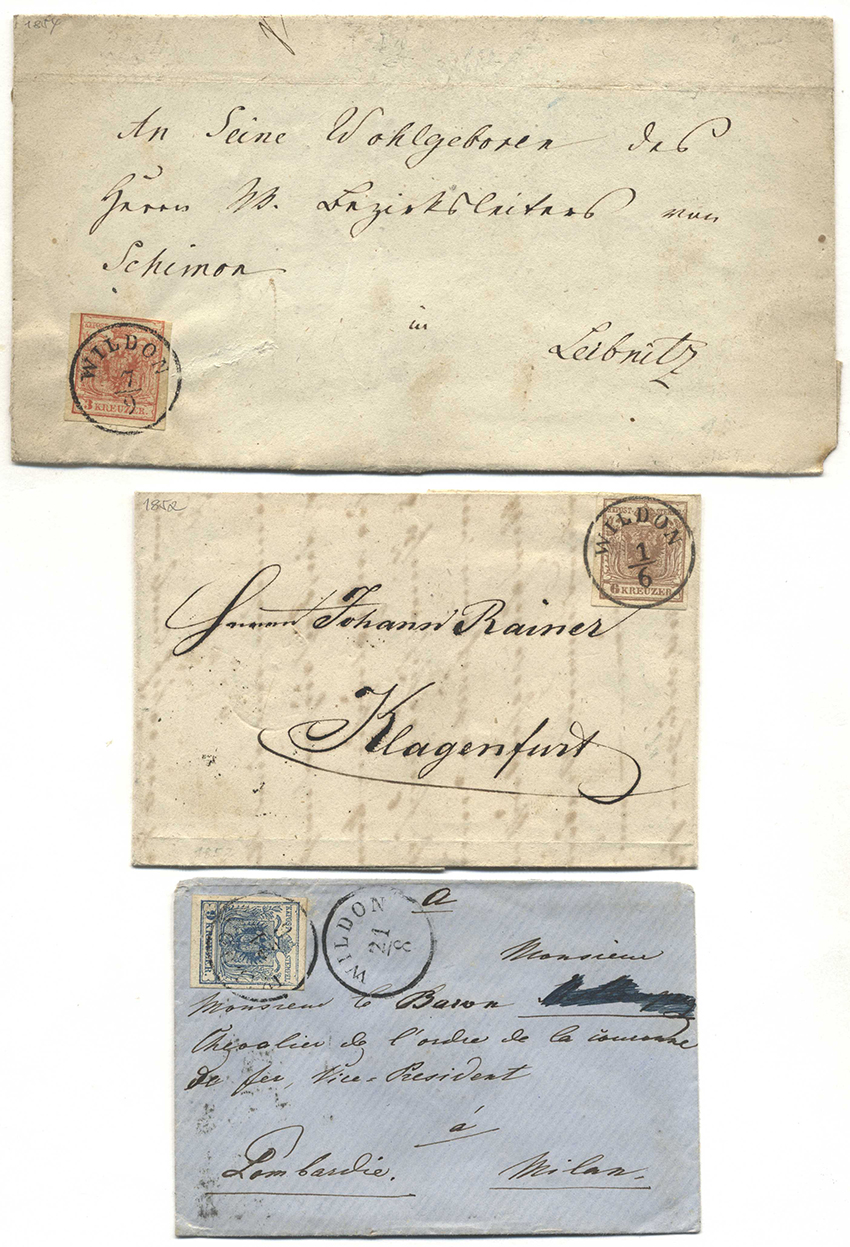 1854
An Seine Wohlgeboren des
Herrn W. Bezirksleiters von
Schimon
in
Leibnitz
WILDON
7/9
3 KREUZER.
1852
WILDON
1/6
6 KREUZER
Herrn Johann Rainer
Klagenfurt
1852
9 KREUZER.
WILDON
21/8
a
Monsieur
Monsieur le Baron
Chevalier de l'ordre de la couronne
de fer, Vice-President
à
Lombardie. Milan.